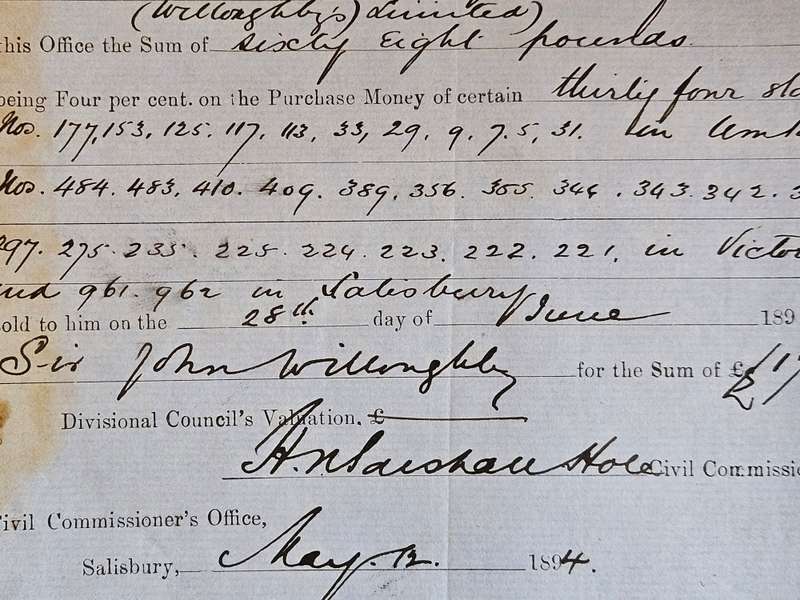 (Willoughby's) Limited)
this Office the Sum of sixty Eight pounds
being Four per cent. on the Purchase Money of certain thirty four
Nos. 177, 153, 125. 117. 113, 33, 29. 9. 7. 5, 31. in
Nos. 484. 483, 410. 409. 389. 356. 355. 346. 343. 342.
297. 275. 235. 225. 224. 223. 222. 221, in
and 961. 962 in Salisbury
sold to him on the 28th day of June 189
Sir John Willoughby for the Sum of £
Divisional Council's Valuation. £
H. Marshall Hole Civil
Civil Commissioner's Office,
Salisbury, May. 12. 1894.